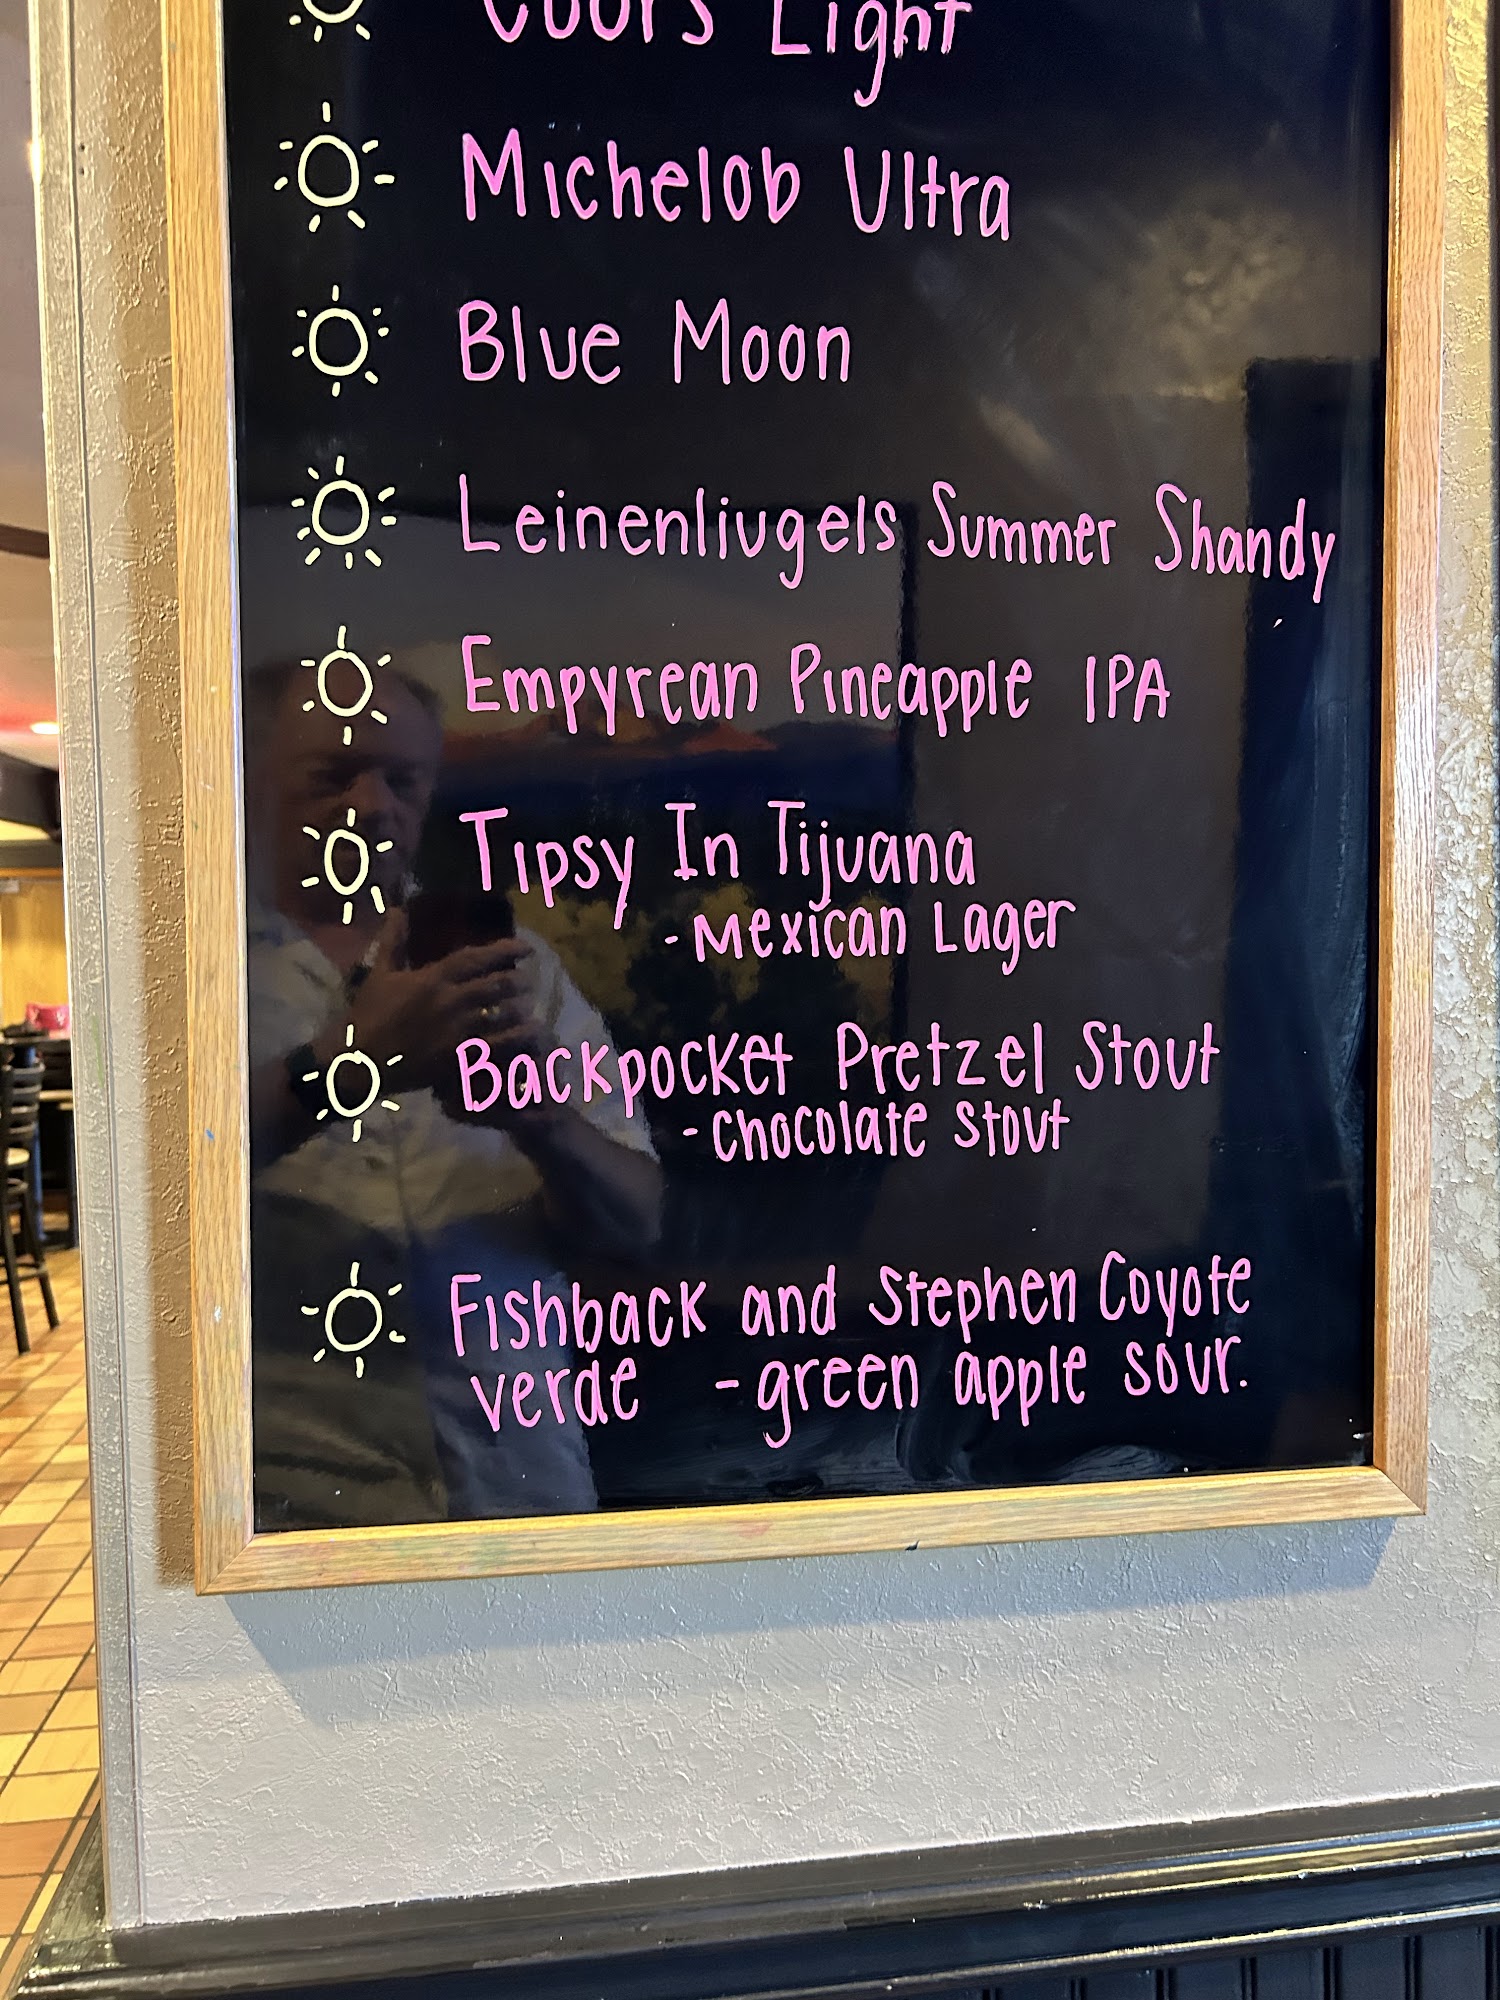 Coors Light
Michelob Ultra
Blue Moon
Leinenliugels Summer Shandy
Empyrean Pineapple IPA
Tipsy In Tijuana
-Mexican Lager
Backpocket Pretzel Stout
-Chocolate Stout
Fishback and Stephen Coyote
verde -green apple sour.